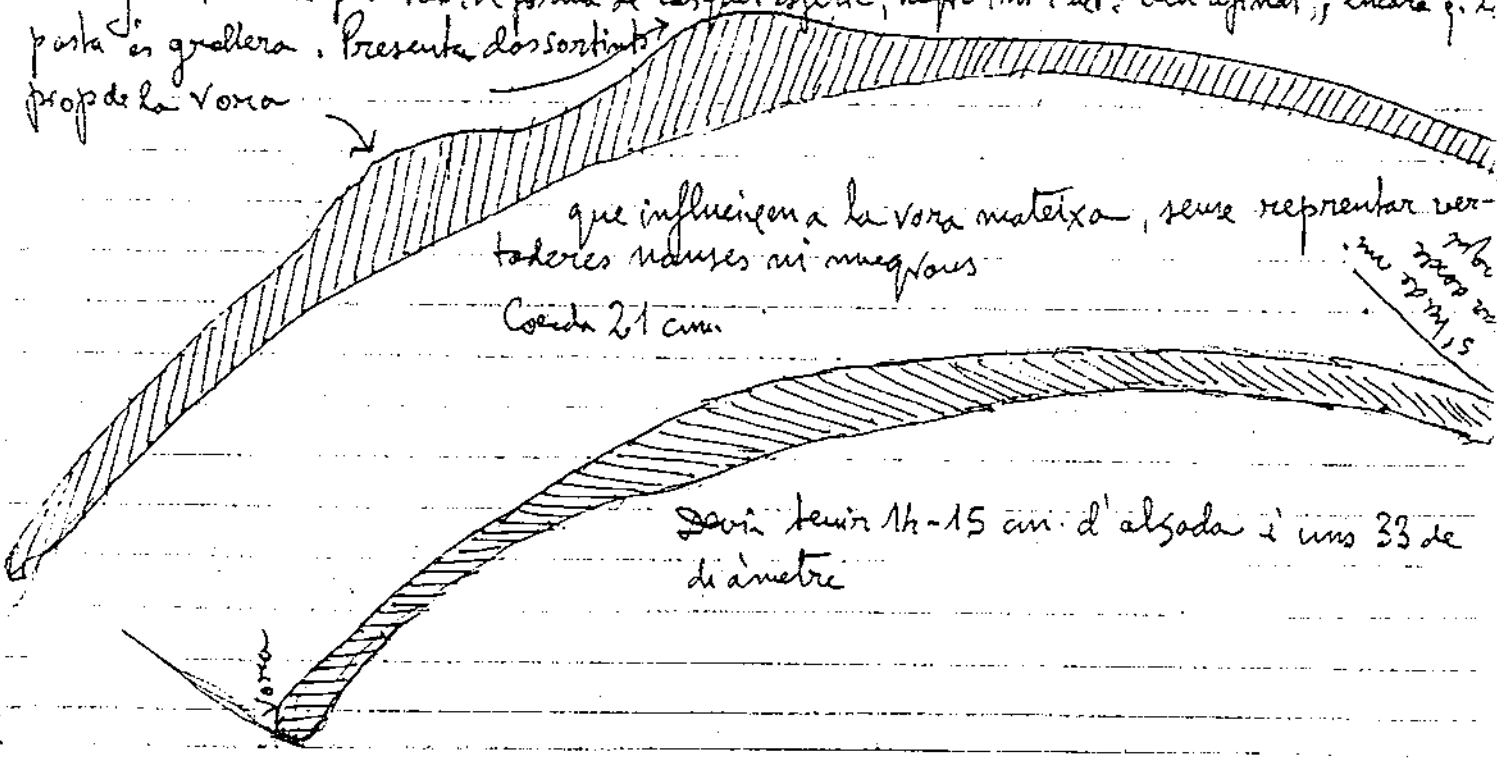 forma de casquet esfèric, negre int. i ext. ben afinat, encara q. la
pasta és grollera. Presenta dos sortints
prop de la vora
que influeixen a la vora mateixa, sense reprentar ver-
taderes nanses ni mugrons
Corda 21 cm.
s'ha de
Devia tenir 14-15 cm. d'alçada i uns 33 de
diàmetre
vora